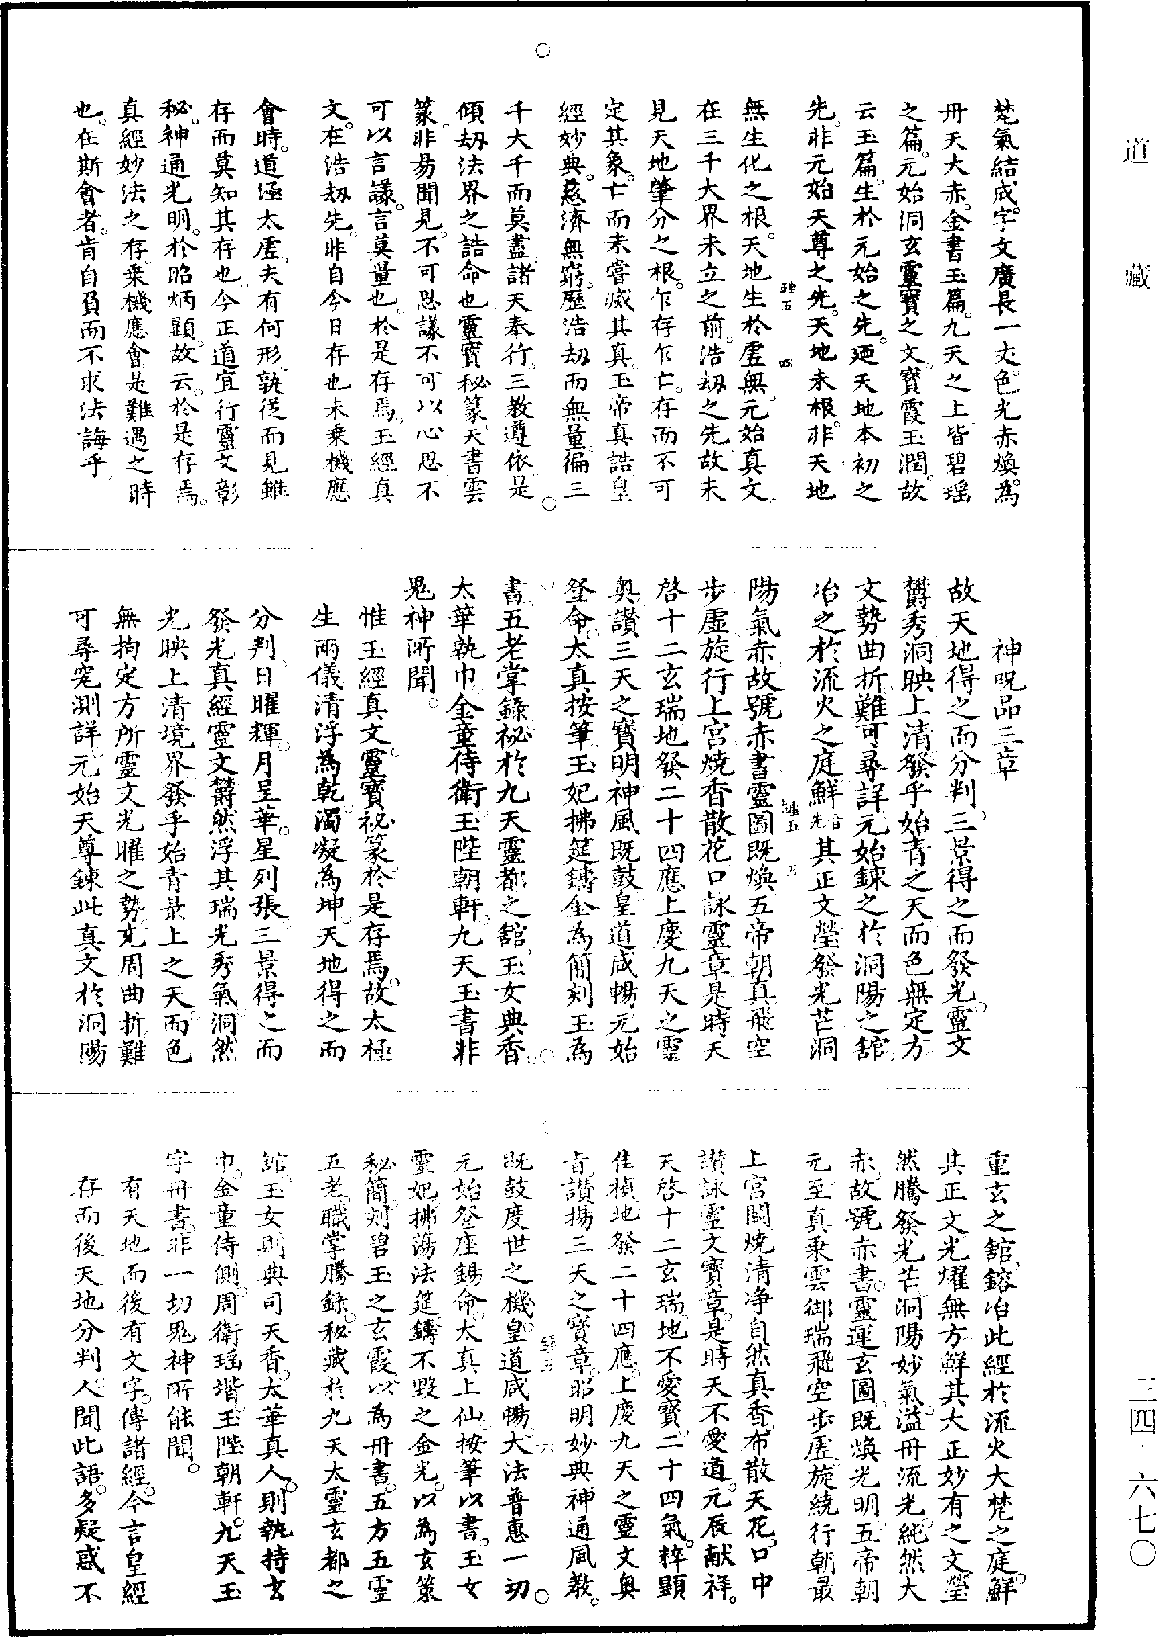 道藏
三四・六七〇
梵氣結成。字文廣長一丈。色光赤煥。為
冊天大赤。金書玉篇。九天之上皆碧瑶
之篇。元始洞玄靈寶之文。寶霞玉潤。故
云玉篇。生於元始之先。廼天地本初之
先。非元始天尊之先。天地未根。非天地
無生化之根。天地生於虛無。元始真文
在三千大界未立之前。浩刼之先。故未
見天地肇分之根。乍存乍亡。存而不可
定其象。亡而未嘗滅其真。玉帝真誥。皇
經妙典。慈濟無窮。歷浩刼而無量。徧三
千大千而莫盡。諸天奉行。三教遵依。是
傾刼法界之誥命也。靈寶秘篆。天書雲
篆。非易聞見。不可思議。不可以心思。不
可以言議。言莫量也。於是存焉。玉經真
文。在浩刼先。非自今日存也。未乗機應
會時。道運太虛。夫有何形。孰從而見。雖
存而莫知其存也。今正道宜行。靈文彰
秘。神通光明。於昭炳顯。故云。於是存焉。
真經妙法之存。乗機應會。是難遇之時
也。在斯會者。肯自負而不求法誨乎。
神呪品三章
故天地得之而分判。三景得之而發光。靈文
欝秀。洞映上清。發乎始青之天而色無定方。
文勢曲折。難可尋詳。元始鍊之於洞陽之舘。
冶之於流火之庭。鮮音先其正文。瑩發光芒。洞
陽氣赤。故號赤書。靈圖既煥。五帝朝真。飛空
步虛。旋行上宮。燒香散花。口詠靈章。是時天
啓十二玄瑞。地發二十四應。上慶九天之靈
奥。讃三天之寶明。神風既鼓。皇道咸暢。元始
登命。太真按筆。玉妃拂筵。鑄金為簡。刻玉為
書。五老掌錄。祕於九天靈都之舘。玉女典香。
太華執巾。金童侍衛。玉陛朝軒。九天玉書。非
鬼神所聞。
惟玉經真文。靈寶祕篆。於是存焉。故太極
生兩儀。清浮為乾。濁凝為坤。天地得之而
分判。日曜輝。月呈華。星列張。三景得之而
發光。真經靈文。欝然浮其瑞光。秀氣洞然
光映上清境界。發乎始青最上之天。而色
無拘定方所。靈文光曜之勢。充周曲折。難
可尋究測詳。元始天尊鍊此真文於洞陽
重玄之舘。鎔冶此經於流火大梵之庭。鮮
其正文。光燿無方。鮮其大正妙有之文。瑩
然騰發光芒。洞陽妙氣。溢冊流光。純然大
赤。故號赤書。靈運玄圖。既煥光明。五帝朝
元。至真秉雲御瑞。飛空步虛。旋繞行朝最
上宮闕。燒清净自然真香。布散天花。口中
讃詠靈文寶章。是時天不愛道。元辰献祥。
天啓十二玄瑞。地不愛寶。二十四氣。粹顯
佳禎。地發二十四應。上慶九天之靈文奥
音。讃揚三天之寶章。昭明妙典。神通風教。
既鼓度世之機。皇道咸暢。大法普惠一切。
元始登座錫命。太真上仙。按筆以書。玉女
靈妃。拂蕩法筵。鑄不毀之金光。以為玄策
秘簡。刻碧玉之玄霞。以為冊書。五方五靈
五老。職掌騰錄。秘藏於九天太靈玄都之
舘。玉女則典司天香。太華真人。則執持玄
巾。金童侍側。周衛瑶堦。玉陛朝軒。九天玉
字冊書。非一切鬼神所能聞。
有天地而後有文字。傳諸經。今言皇經
存而後天地分判。人聞此語。多疑惑不